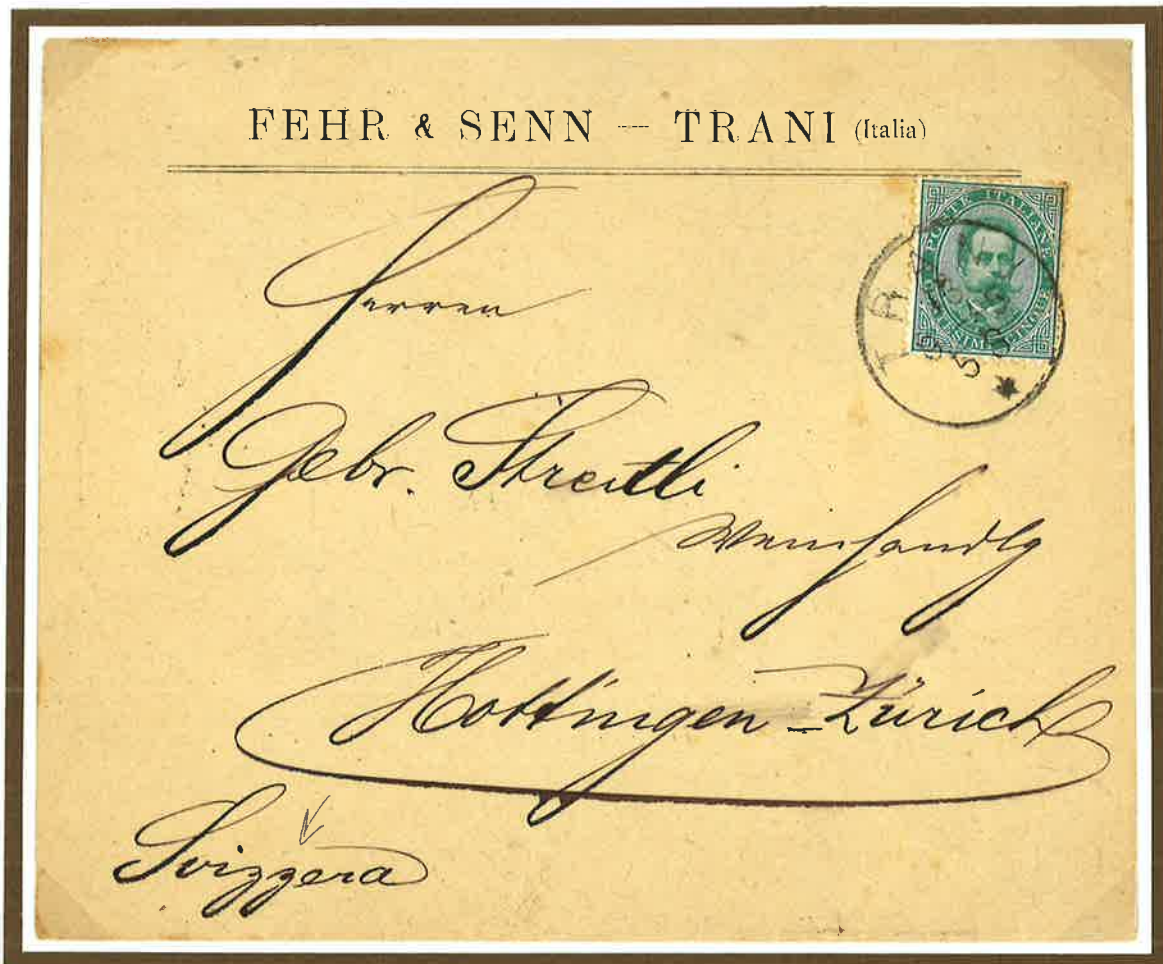 FEHR & SENN — TRANI (Italia)
POSTE ITALIANE
CINQUE
TRANI
Herren
Gebr. Streitli
Weinhandlg
Hottingen-Zürich
Svizzera